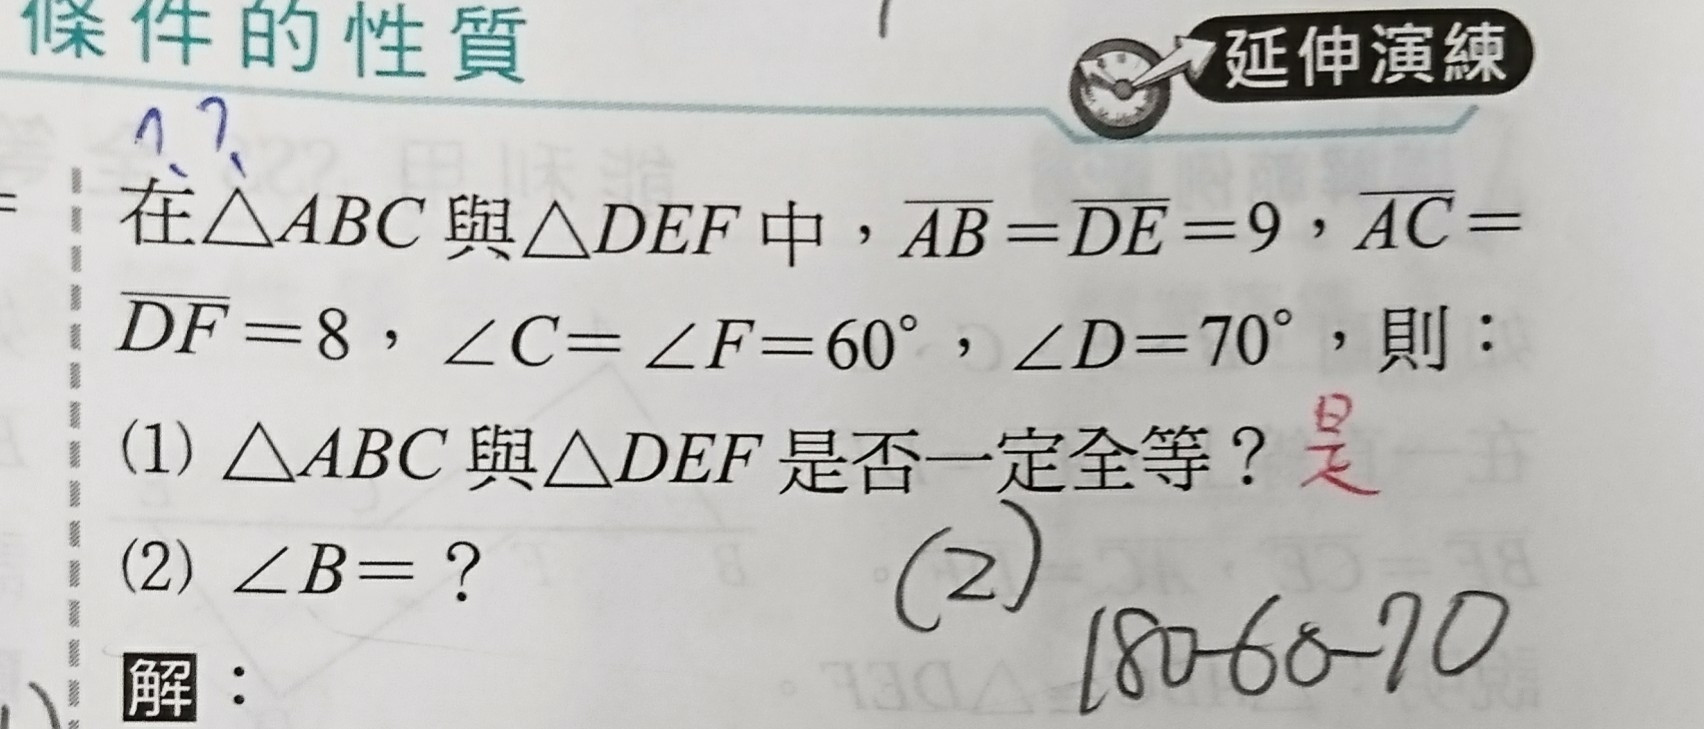 條件的性質
延伸演練
? ?
在△ABC與△DEF中，AB=DE=9，AC=
DF=8，∠C=∠F=60°，∠D=70°，則：
(1) △ABC與△DEF是否一定全等？是
(2) ∠B=？
(2)
180-60-70
解：